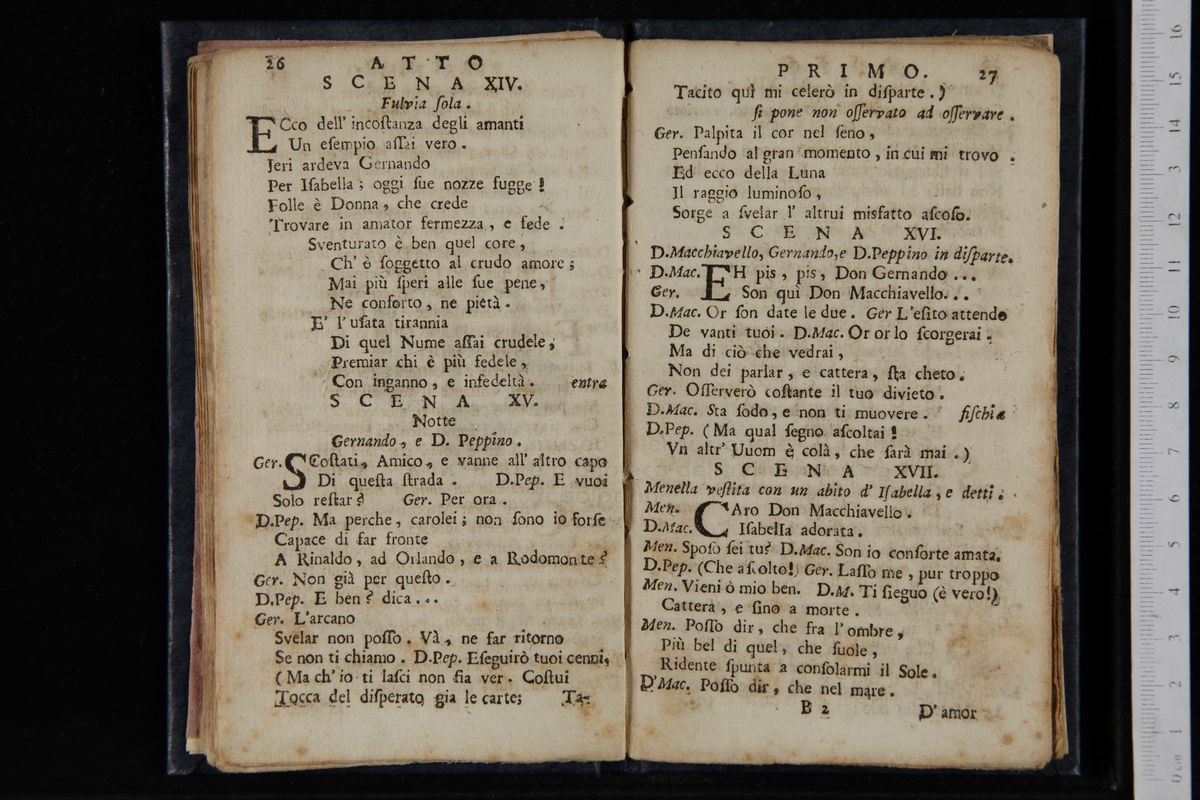 26 ATTO
SCENA XIV.
Fulvia ſola.
ECco dell' incoſtanza degli amanti
Un eſempio aſſai vero.
Jeri ardeva Gernando
Per Iſabella; oggi ſue nozze fugge!
Folle è Donna, che crede
Trovare in amator fermezza, e fede.
Sventurato è ben quel core,
Ch' è ſoggetto al crudo amore;
Mai più ſperi alle ſue pene,
Ne conforto, ne pietà.
E' l' uſata tirannia
Di quel Nume aſſai crudele,
Premiar chi è più fedele,
Con inganno, e infedeltà. entra
SCENA XV.
Notte
Gernando, e D. Peppino.
Ger. SCoſtati, Amico, e vanne all' altro capo
Di queſta ſtrada. D.Pep. E vuoi
Solo reſtar? Ger. Per ora.
D.Pep. Ma perche, carolei; non ſono io forſe
Capace di far fronte
A Rinaldo, ad Orlando, e a Rodomonte?
Ger. Non già per queſto.
D.Pep. E ben? dica...
Ger. L'arcano
Svelar non poſſo. Và, ne far ritorno
Se non ti chiamo. D.Pep. Eſeguirò tuoi cenni,
(Ma ch' io ti laſci non ſia ver. Coſtui
Tocca del diſperato già le carte; Ta-
PRIMO. 27
Tacito quì mi celerò in diſparte.)
ſi pone non oſſervato ad oſſervare.
Ger. Palpita il cor nel ſeno,
Penſando al gran momento, in cui mi trovo.
Ed ecco della Luna
Il raggio luminoſo,
Sorge a ſvelar l' altrui misfatto aſcoſo.
SCENA XVI.
D.Macchiavello, Gernando, e D.Peppino in diſparte.
D.Mac. EH pis, pis, Don Gernando...
Ger. Son quì Don Macchiavello...
D.Mac. Or ſon date le due. Ger L'eſito attendo
De vanti tuoi. D.Mac. Or or lo ſcorgerai.
Ma di ciò che vedrai,
Non dei parlar, e cattera, ſta cheto.
Ger. Oſſerverò coſtante il tuo divieto.
D.Mac. Sta ſodo, e non ti muovere. fiſchia
D.Pep. (Ma qual ſegno aſcoltai!
Vn altr' Uuom è colà, che ſarà mai.)
SCENA XVII.
Menella veſtita con un abito d' Iſabella, e detti.
Men. CAro Don Macchiavello.
D.Mac. Iſabella adorata.
Men. Spoſo ſei tu? D.Mac. Son io conſorte amata.
D.Pep. (Che aſcolto!) Ger. Laſſo me, pur troppo
Men. Vieni ò mio ben. D.M. Ti ſieguo (è vero!)
Cattera, e ſino a morte.
Men. Poſſo dir, che fra l' ombre,
Più bel di quel, che ſuole,
Ridente ſpunta a conſolarmi il Sole.
D'Mac. Poſſo dir, che nel mare.
B 2 D' amor
16
15
14
13
12
11
10
9
8
7
6
5
4
3
2
1
0 cm